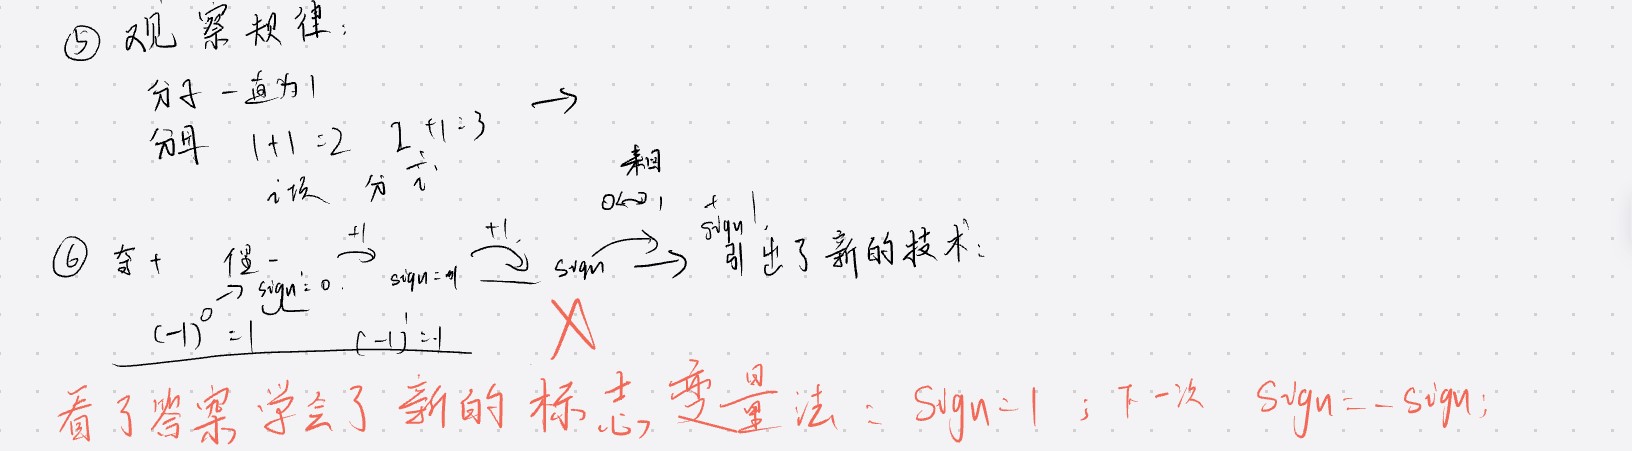 ⑤ 观察规律:
分子一直为1
分母 1+1=2 2+1=3 →
i项 分 i
来回
0↔1
+1 +1 sign!
⑥ 奇+ 偶- sign=0. sign= sign → 引出了新的技术:
(-1)⁰=1 (-1)¹=-1
看了答案学会了新的标志变量法: Sign=1 ; 下一次 Sign=-sign;